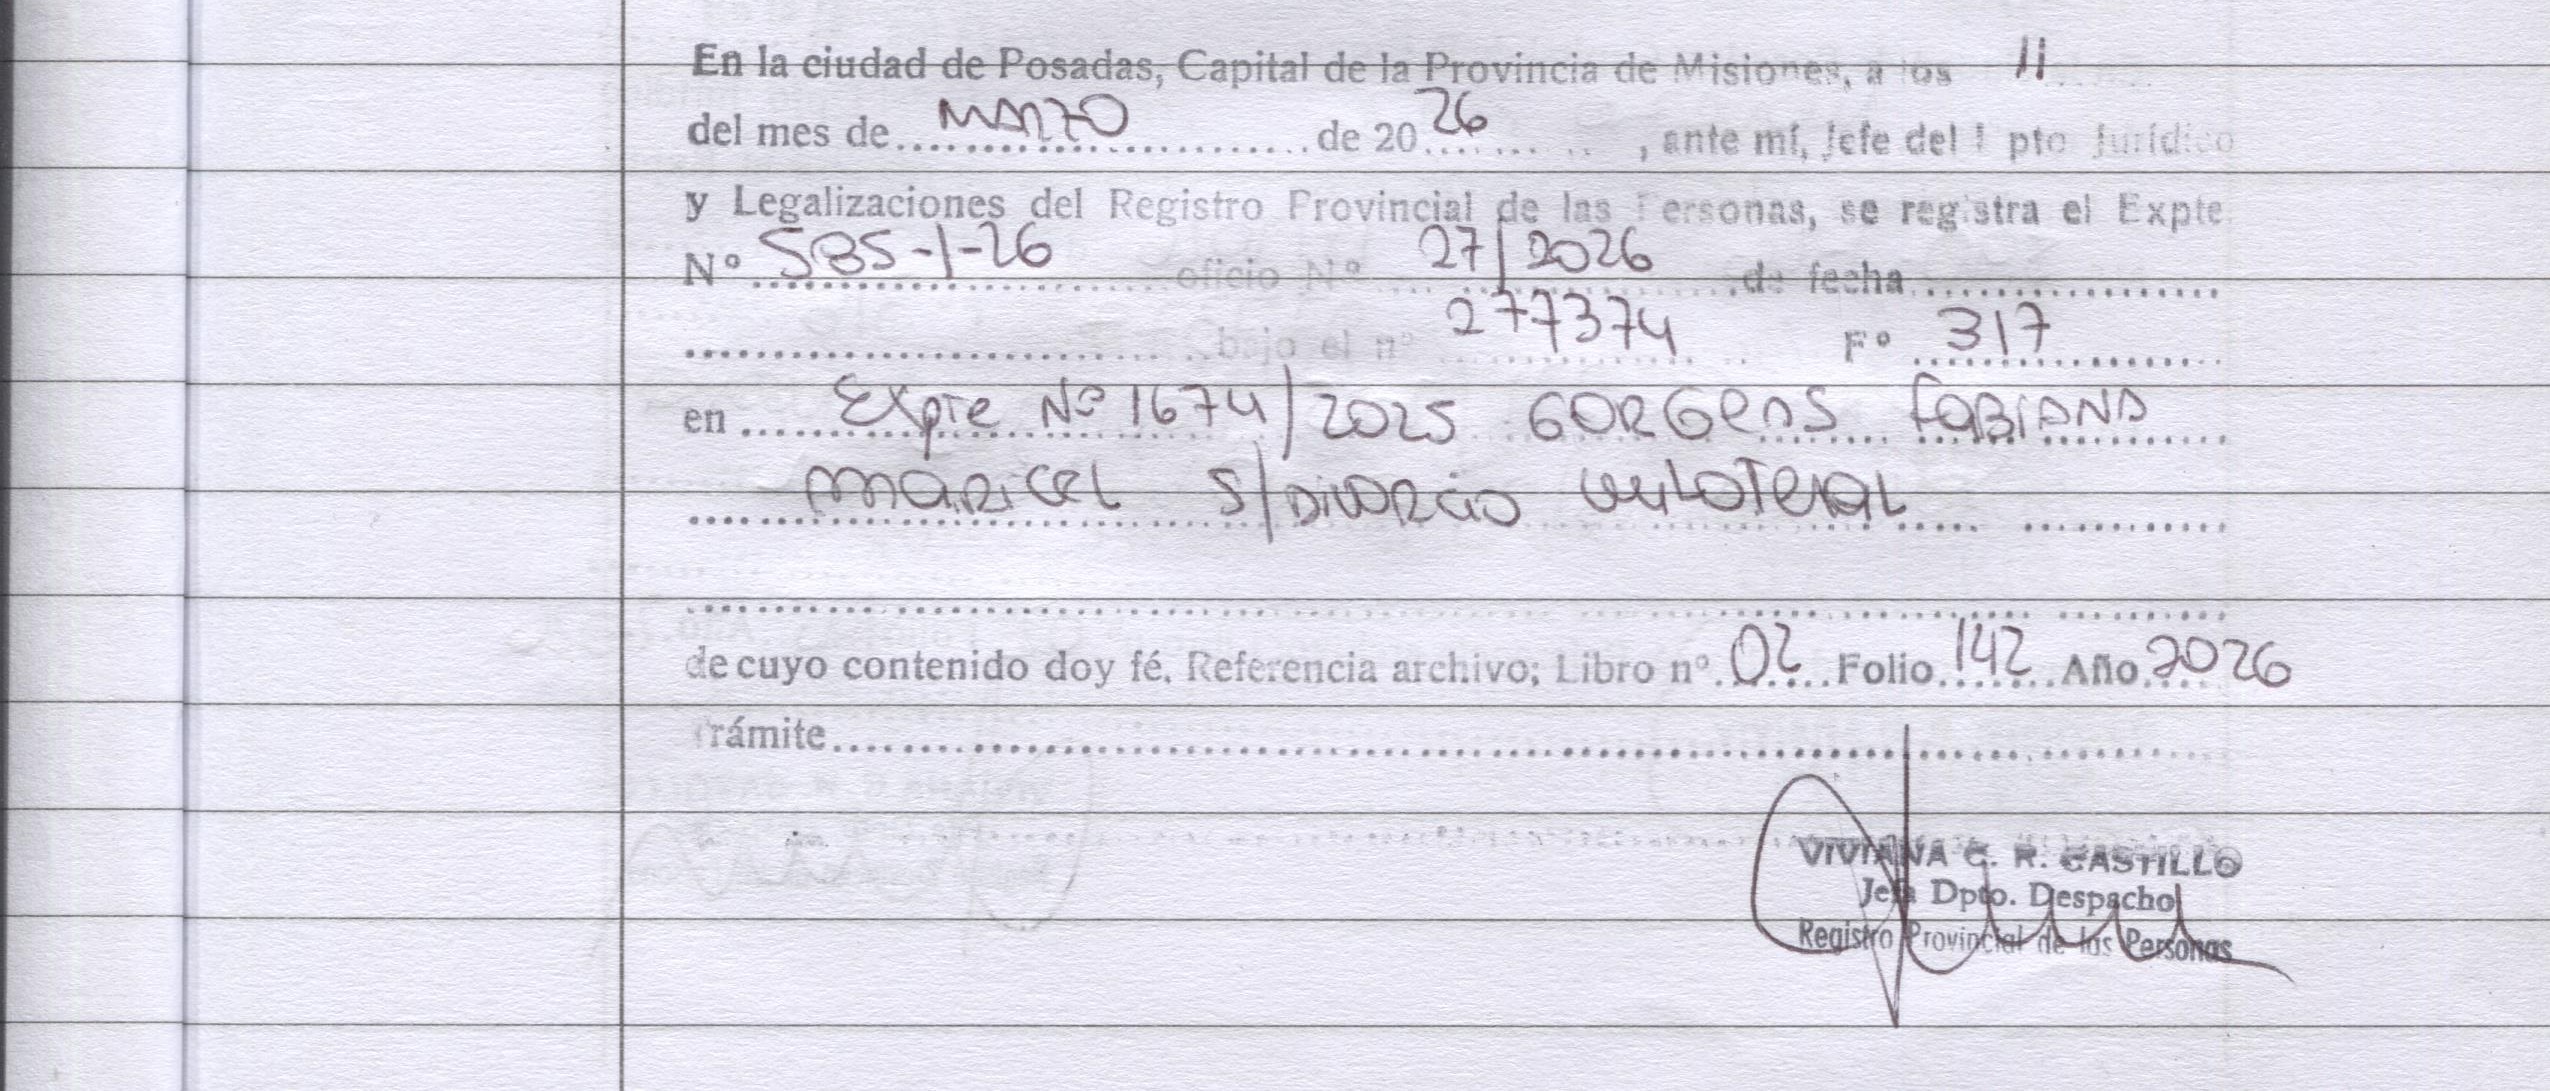 En la ciudad de Posadas, Capital de la Provincia de Misiones, a los 11
del mes de MARZO de 20 26, ante mí, Jefe del Dpto Jurídico
y Legalizaciones del Registro Provincial de las Personas, se registra el Expte
Nº 585-1-26 oficio Nº 27/2026 de fecha
bajo el nº 277374 Fº 317
en Expte Nº 1674/2025 GORGENS FABIANA
MARICEL S/DIVORCIO UNILATERAL
de cuyo contenido doy fé. Referencia archivo; Libro nº 02 Folio 142 Año 2026
Trámite
VIVIANA C. R. CASTILLO
Jefa Dpto. Despacho
Registro Provincial de las Personas